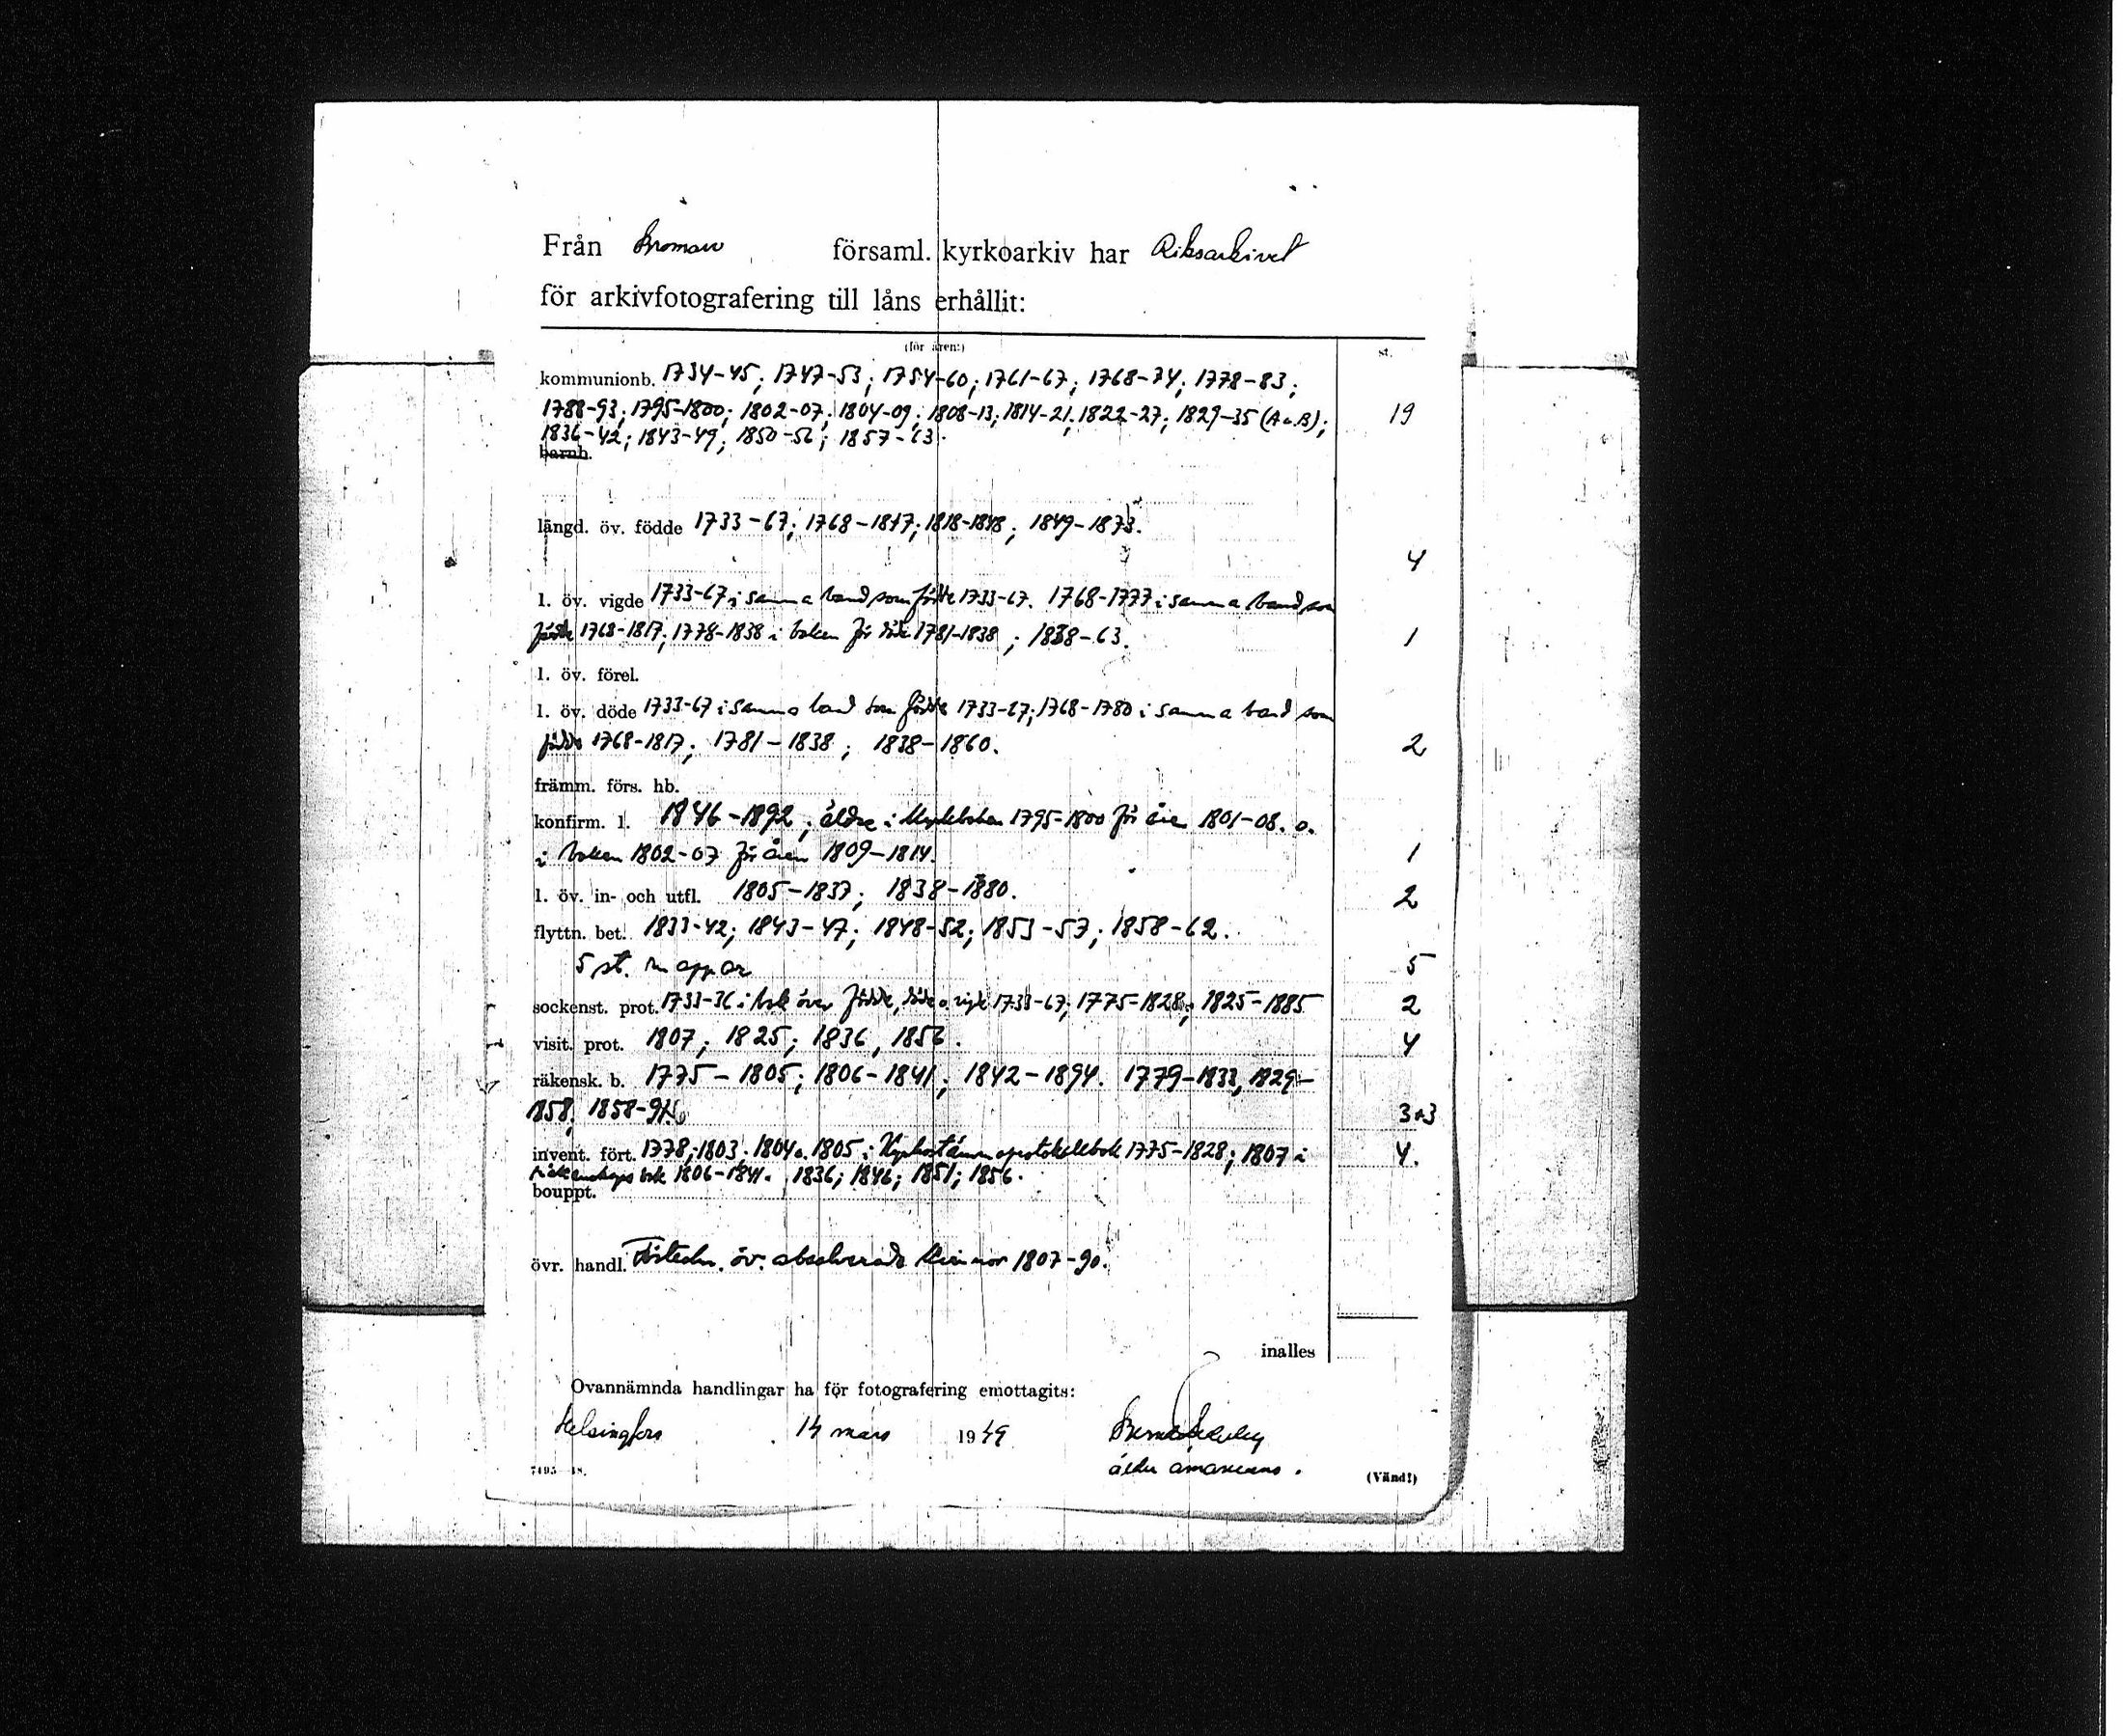 Från Bromarv församl. kyrkoarkiv har Riksarkivet
för arkivfotografering till låns erhållit:
(för åren:) st.
kommunionb. 1734-45; 1747-53; 1754-60; 1761-67; 1768-74; 1778-83;
1788-93; 1795-1800; 1802-07; 1804-09; 1808-13; 1814-21; 1822-27; 1829-35 (A o. B); 19
1836-42; 1843-49; 1850-56; 1857-63.
barnb.
längd. öv. födde 1733-67; 1768-1817; 1818-1848; 1849-1873.
4
l. öv. vigde 1733-67 i samma band som födde 1733-67. 1768-1777 i samma band som
födde 1768-1817; 1778-1838 i boken för döde 1781-1838; 1838-63. 1
l. öv. förel.
l. öv. döde 1733-67 i samma band som födde 1733-67; 1768-1780 i samma band som
födde 1768-1817; 1781-1838; 1838-1860. 2
främm. förs. hb.
konfirm. l. 1846-1892; äldre i 1795-1800 för åren 1801-08. o.
i boken 1802-07 för åren 1809-1814. 1
l. öv. in- och utfl. 1805-1837; 1838-1880. 2
flyttn. bet. 1833-42; 1843-47; 1848-52; 1853-57; 1858-62.
5 st. mappar 5
sockenst. prot. 1733-36 i bok över födde, döde o. vigde 1733-67; 1775-1828; 1825-1885 2
visit. prot. 1807; 1825; 1836, 1856. 4
räkensk. b. 1775-1805; 1806-1841; 1842-1894. 1779-1833, 1829-
1858, 1858- 3+3
invent. fört. 1778; 1803; 1804 o. 1805 i Kyrkostämmoprotokollsbok 1775-1828; 1807 i 4.
räkenskapsbok 1806-1841. 1836; 1846; 1851; 1856.
bouppt.
övr. handl. Förteckn. öv. absolverade kvinnor 1807-90.
inalles
Ovannämnda handlingar ha för fotografering emottagits:
Helsingfors 14 mars 1949
äldre amanuens.
7495 48. (Vänd!)